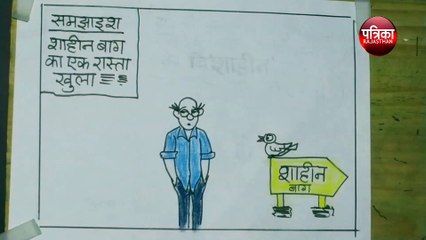 समझाइश
शाहीन बाग
का एक रास्ता
खुला
पत्रिका
RAJASTHAN
शाहीन
बाग